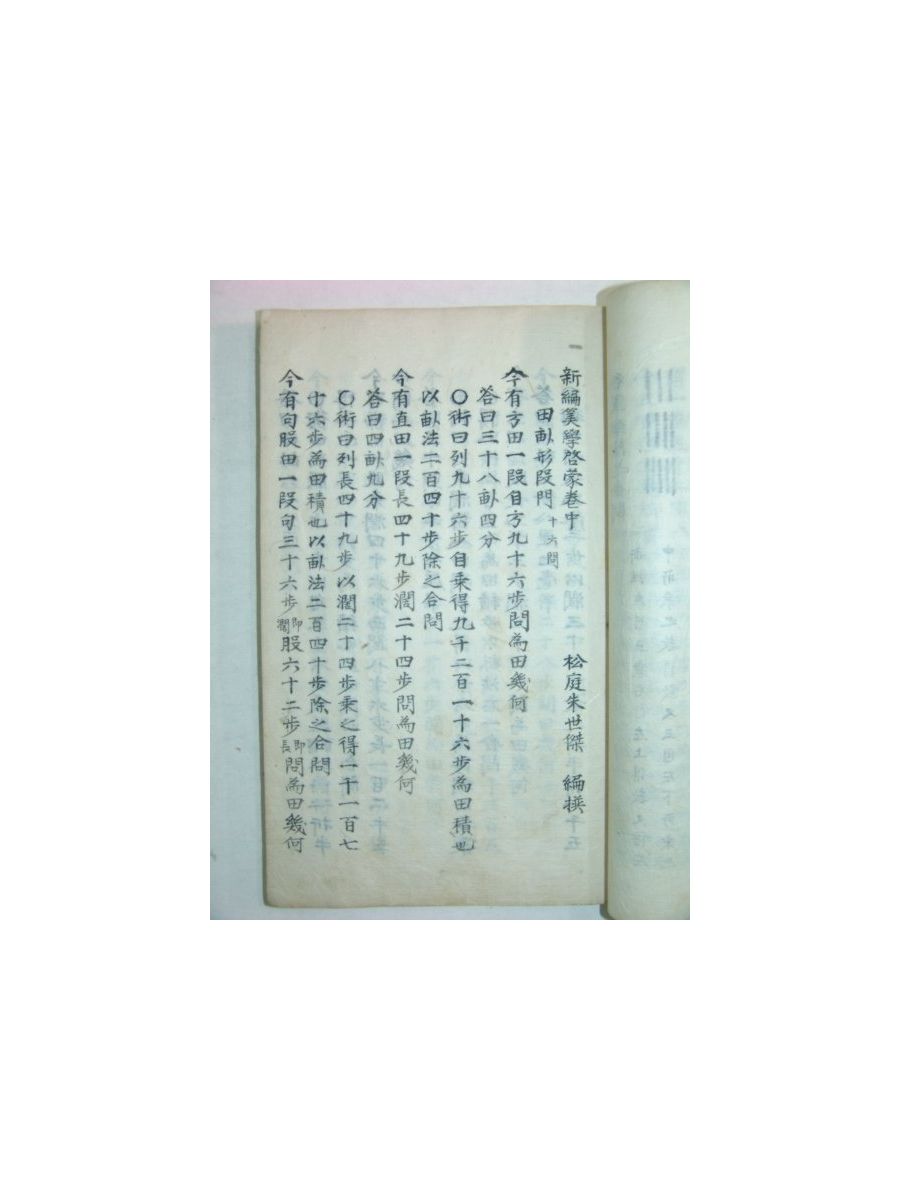 新編筭學啓蒙卷中 松庭朱世傑 編撰
田畝形段門 十六問
今有方田一段自方九十六步問為田幾何
答曰三十八畝四分
〇術曰列九十六步自乘得九千二百一十六步為田積也
以畝法二百四十步除之合問
今有直田一段長四十九步濶二十四步問為田幾何
答曰四畝九分
〇術曰列長四十九步以濶二十四步乘之得一千一百七
十六步為田積也以畝法二百四十步除之合問
今有句股田一段句三十六步 即濶 股六十二步 即長 問為田幾何